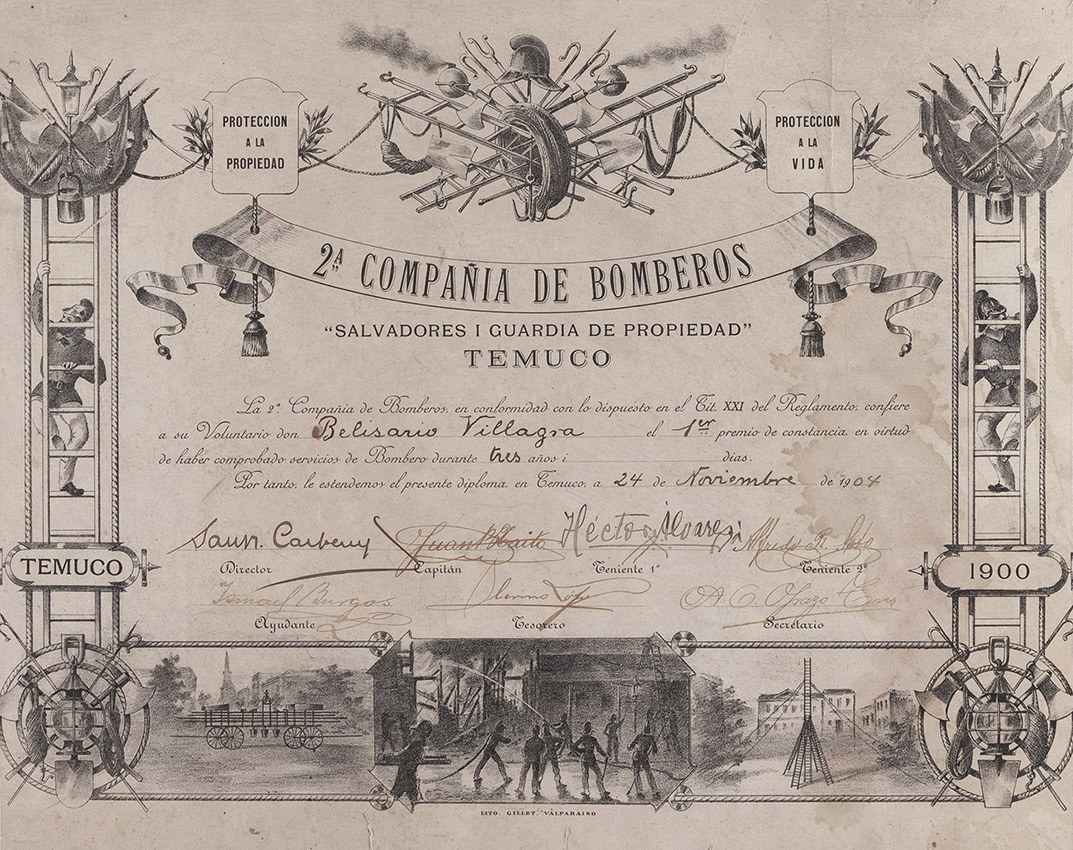 PROTECCION
A LA
PROPIEDAD
PROTECCION
A LA
VIDA
2ª COMPAÑIA DE BOMBEROS
"SALVADORES I GUARDIA DE PROPIEDAD"
TEMUCO
La 2ª Compañia de Bomberos, en conformidad con lo dispuesto en el Tit. XXI del Reglamento, confiere
a su Voluntario don Belisario Villagra el 1er premio de constancia, en virtud
de haber comprobado servicios de Bombero durante tres años i dias.
Por tanto, le estendemos el presente diploma, en Temuco, a 24 de Noviembre de 1904
Héctor Álvarez
Director Capitán Teniente 1º Teniente 2º
Ismael Burgos
Ayudante Tesorero Secretario
TEMUCO
1900
LITO. GILLET, VALPARAISO